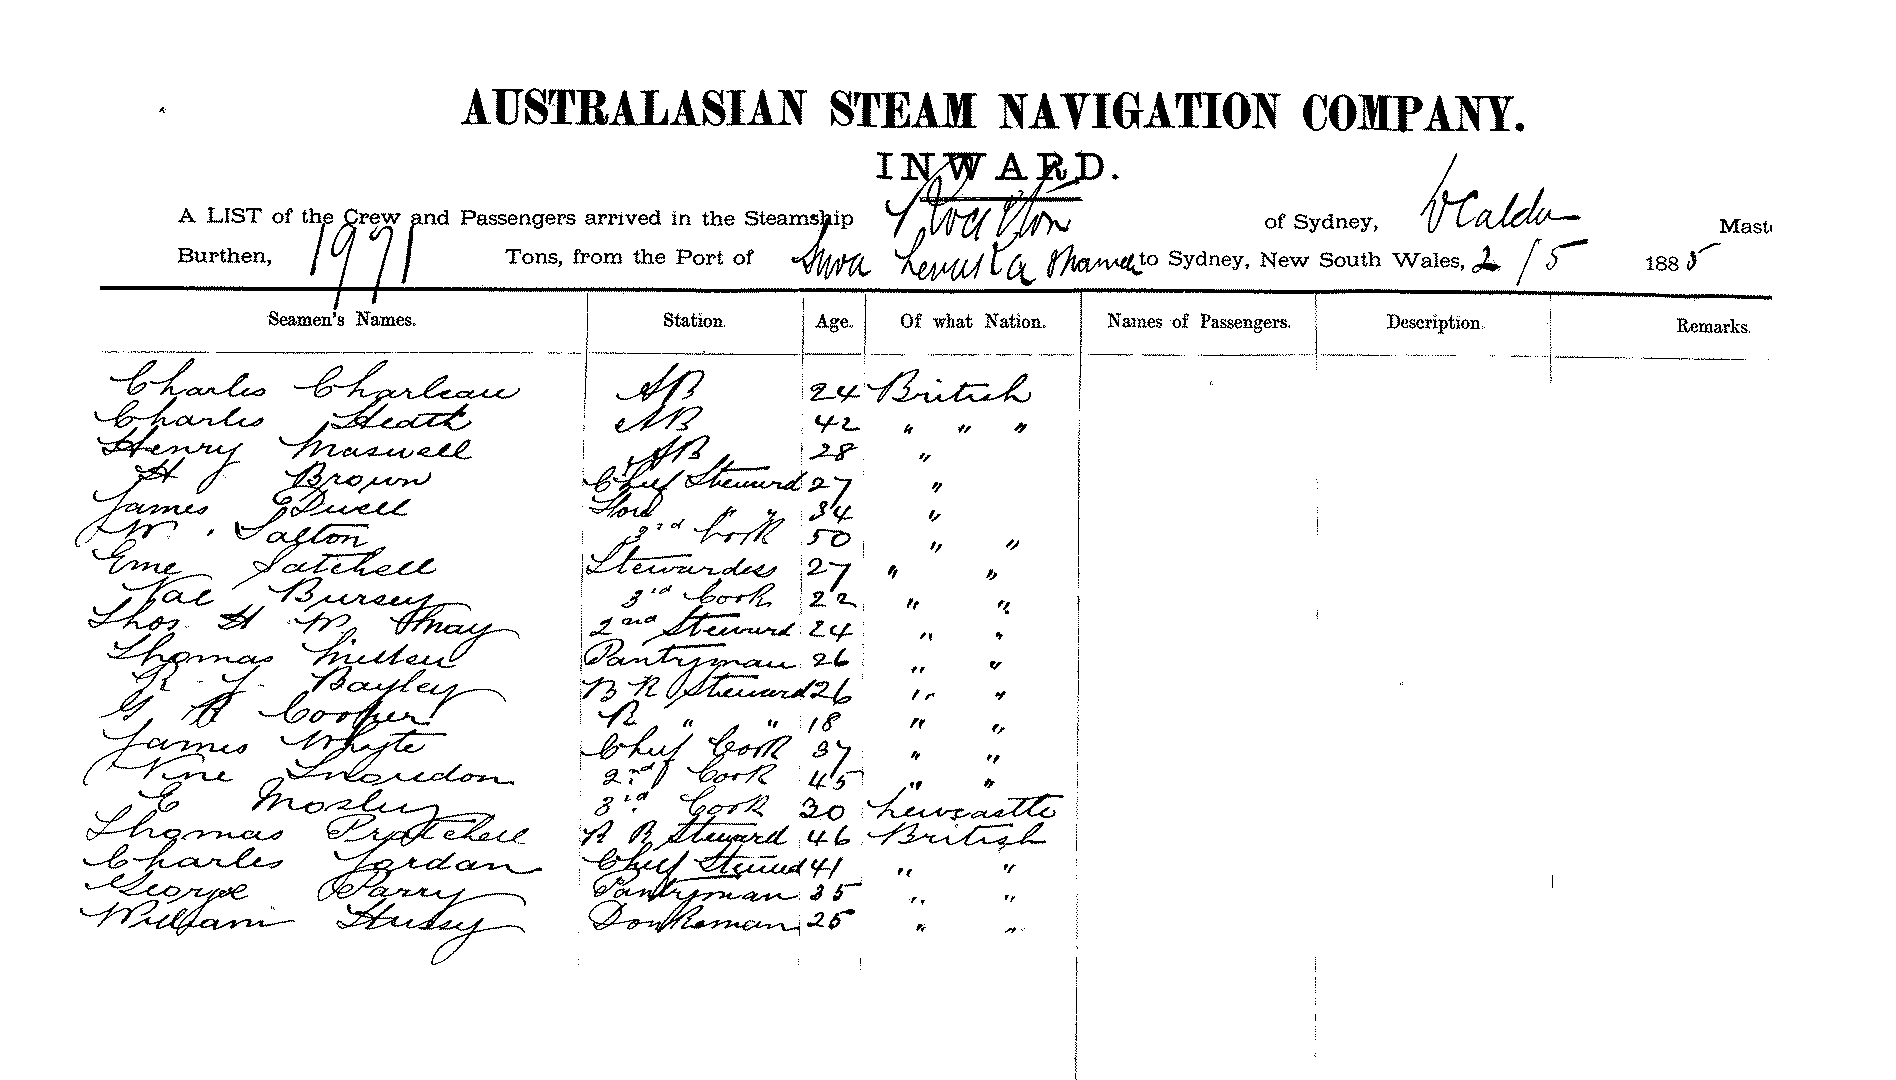 AUSTRALASIAN STEAM NAVIGATION COMPANY.
INWARD.
A LIST of the Crew and Passengers arrived in the Steamship of Sydney, Maste
Burthen, 1971 Tons, from the Port of Suva Levuka to Sydney, New South Wales, 2/5 1885
Seamen's Names. Station. Age. Of what Nation. Names of Passengers. Description. Remarks.
Charles Charleau AB 24 British
Charles Heath AB 42 " " "
Henry Maxwell AB 28 "
H Brown Chief Steward 27 "
James " " 34 "
W. Salton Cook 50 " "
Satchell Stewardess 27 " "
Bursey 3rd Cook 22 " "
Thos H W May 2nd Steward 24 " "
Thomas Pantryman 26 " "
Bayley B R Steward 26 " "
G A Cooper R " " 18 " "
James Whyte Chief Cook 37 " "
2nd Cook 45 " "
E Mosley 3rd Cook 30 Newcastle
Thomas Pratchell R R Steward 46 British
Charles Jordan Chief Steward 41 " "
George Parry Pantryman 35 " "
William Hussy Donkeman 25 " "